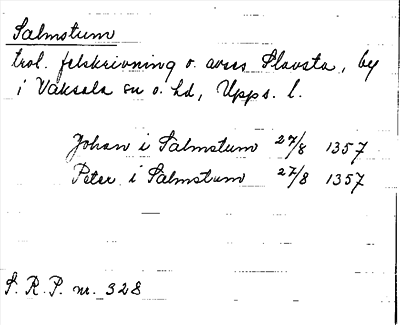 Salmstum
trol. felskrivning o. avses Slavsta, by
i Vaksala sn o. hd, Upps. l.
Johan i Salmstum 27/8 1357
Peter i Salmstum 27/8 1357
S. R. P. nr. 328